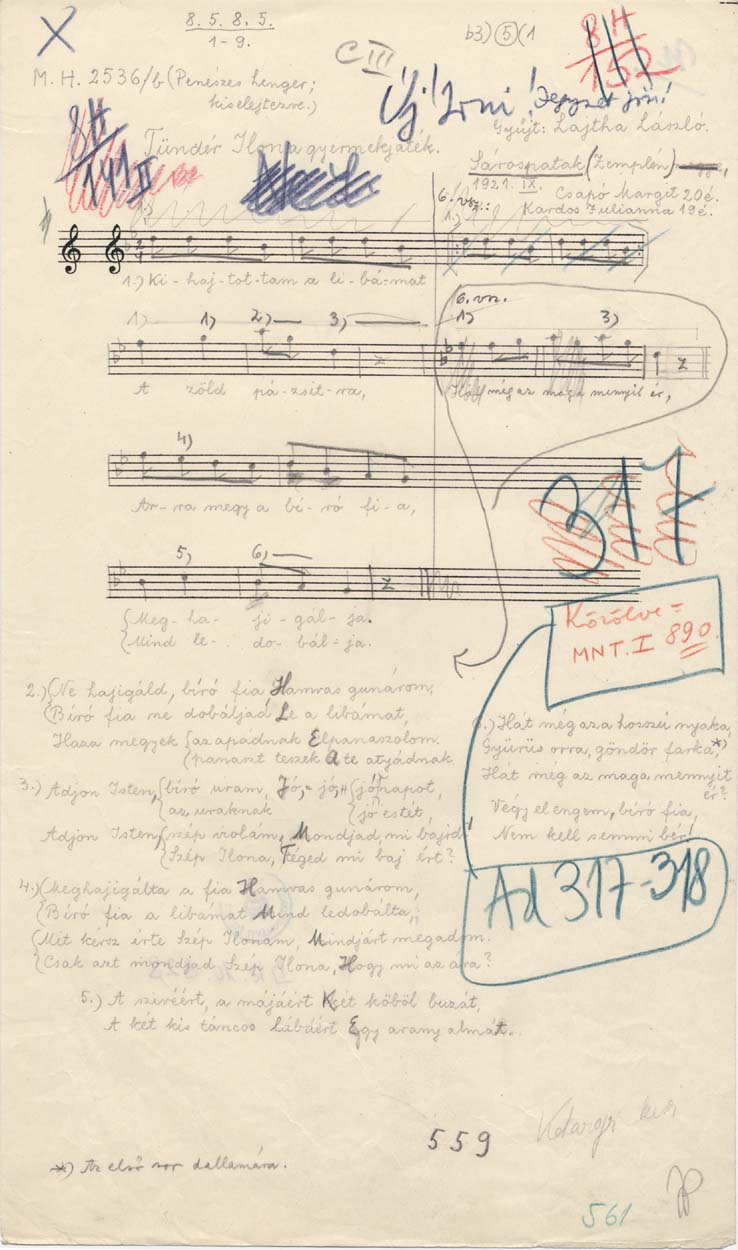 8. 5. 8. 5.
1-9.
b3) 5 (1
C III
8H
152
M. H. 2536/b (Penészes henger;
kiselejtezve.)
Új! Irni! Jegyzet jön!
Gyűjt: Lajtha László.
8H
141 II
Tündér Ilona gyermekjáték.
Sárospatak (Zemplén)
1921. IX.
Csapó Margit 20é.
Kardos Zulianna 19é.
6. vsz.:
1.)
1.) Ki-haj-tot-tam a li-bá-mat
6. vsz.
1) 1) 2) 3)
1) 3)
A zöld pá-zsit-ra,
Hát még az maga mennyit ér,
4)
Ar-ra megy a bí-ró fi-a,
317
5) 6)
Meg-ha-ji-gál-ja.
Mind le-do-bál-ja.
Közölve =
MNT. I 890.
2.) Ne hajigáld, bíró fia Hamvas gunárom,
Bíró fia ne dobáljad Le a libámat,
Haza megyek az apádnak Elpanaszolom.
panaszt teszek A te atyádnak.
3.) Adjon Isten, bíró uram, Jó, jó, jónapot,
az uraknak jó estét,
Adjon Isten, szép violám, Mondjad, mi bajod!
Szép Ilona, Téged mi baj ért?
4.) Meghajigálta a fia Hamvas gunárom,
Bíró fia a libámat Mind ledobálta,
Mit kérsz érte Szép Ilonám, Mindjárt megadom.
Csak azt mondjad Szép Ilona, Hogy mi az ára?
5.) A szívéért, a májáért Két köböl buzát,
A két kis táncos lábáért Egy arany almát.
6.) Hát még aza hosszú nyaka,
Gyürüs orra, göndör farka *)
Hát még az maga mennyit
ér?
Végy el engem, bíró fia,
Nem kell semmi bér!
Ad 317-318
559
*) Az első sor dallamára.
561